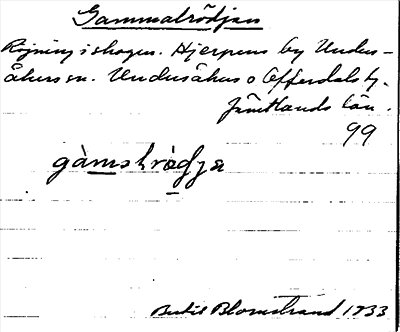 Gammalrödjan
Röjning i skogen. Hjerpens by Undus-
åkers sn. Undersåkers o Offerdals tg.
Jämtlands län.
99
gàmslrødja
Bertil Blomstrand 1933